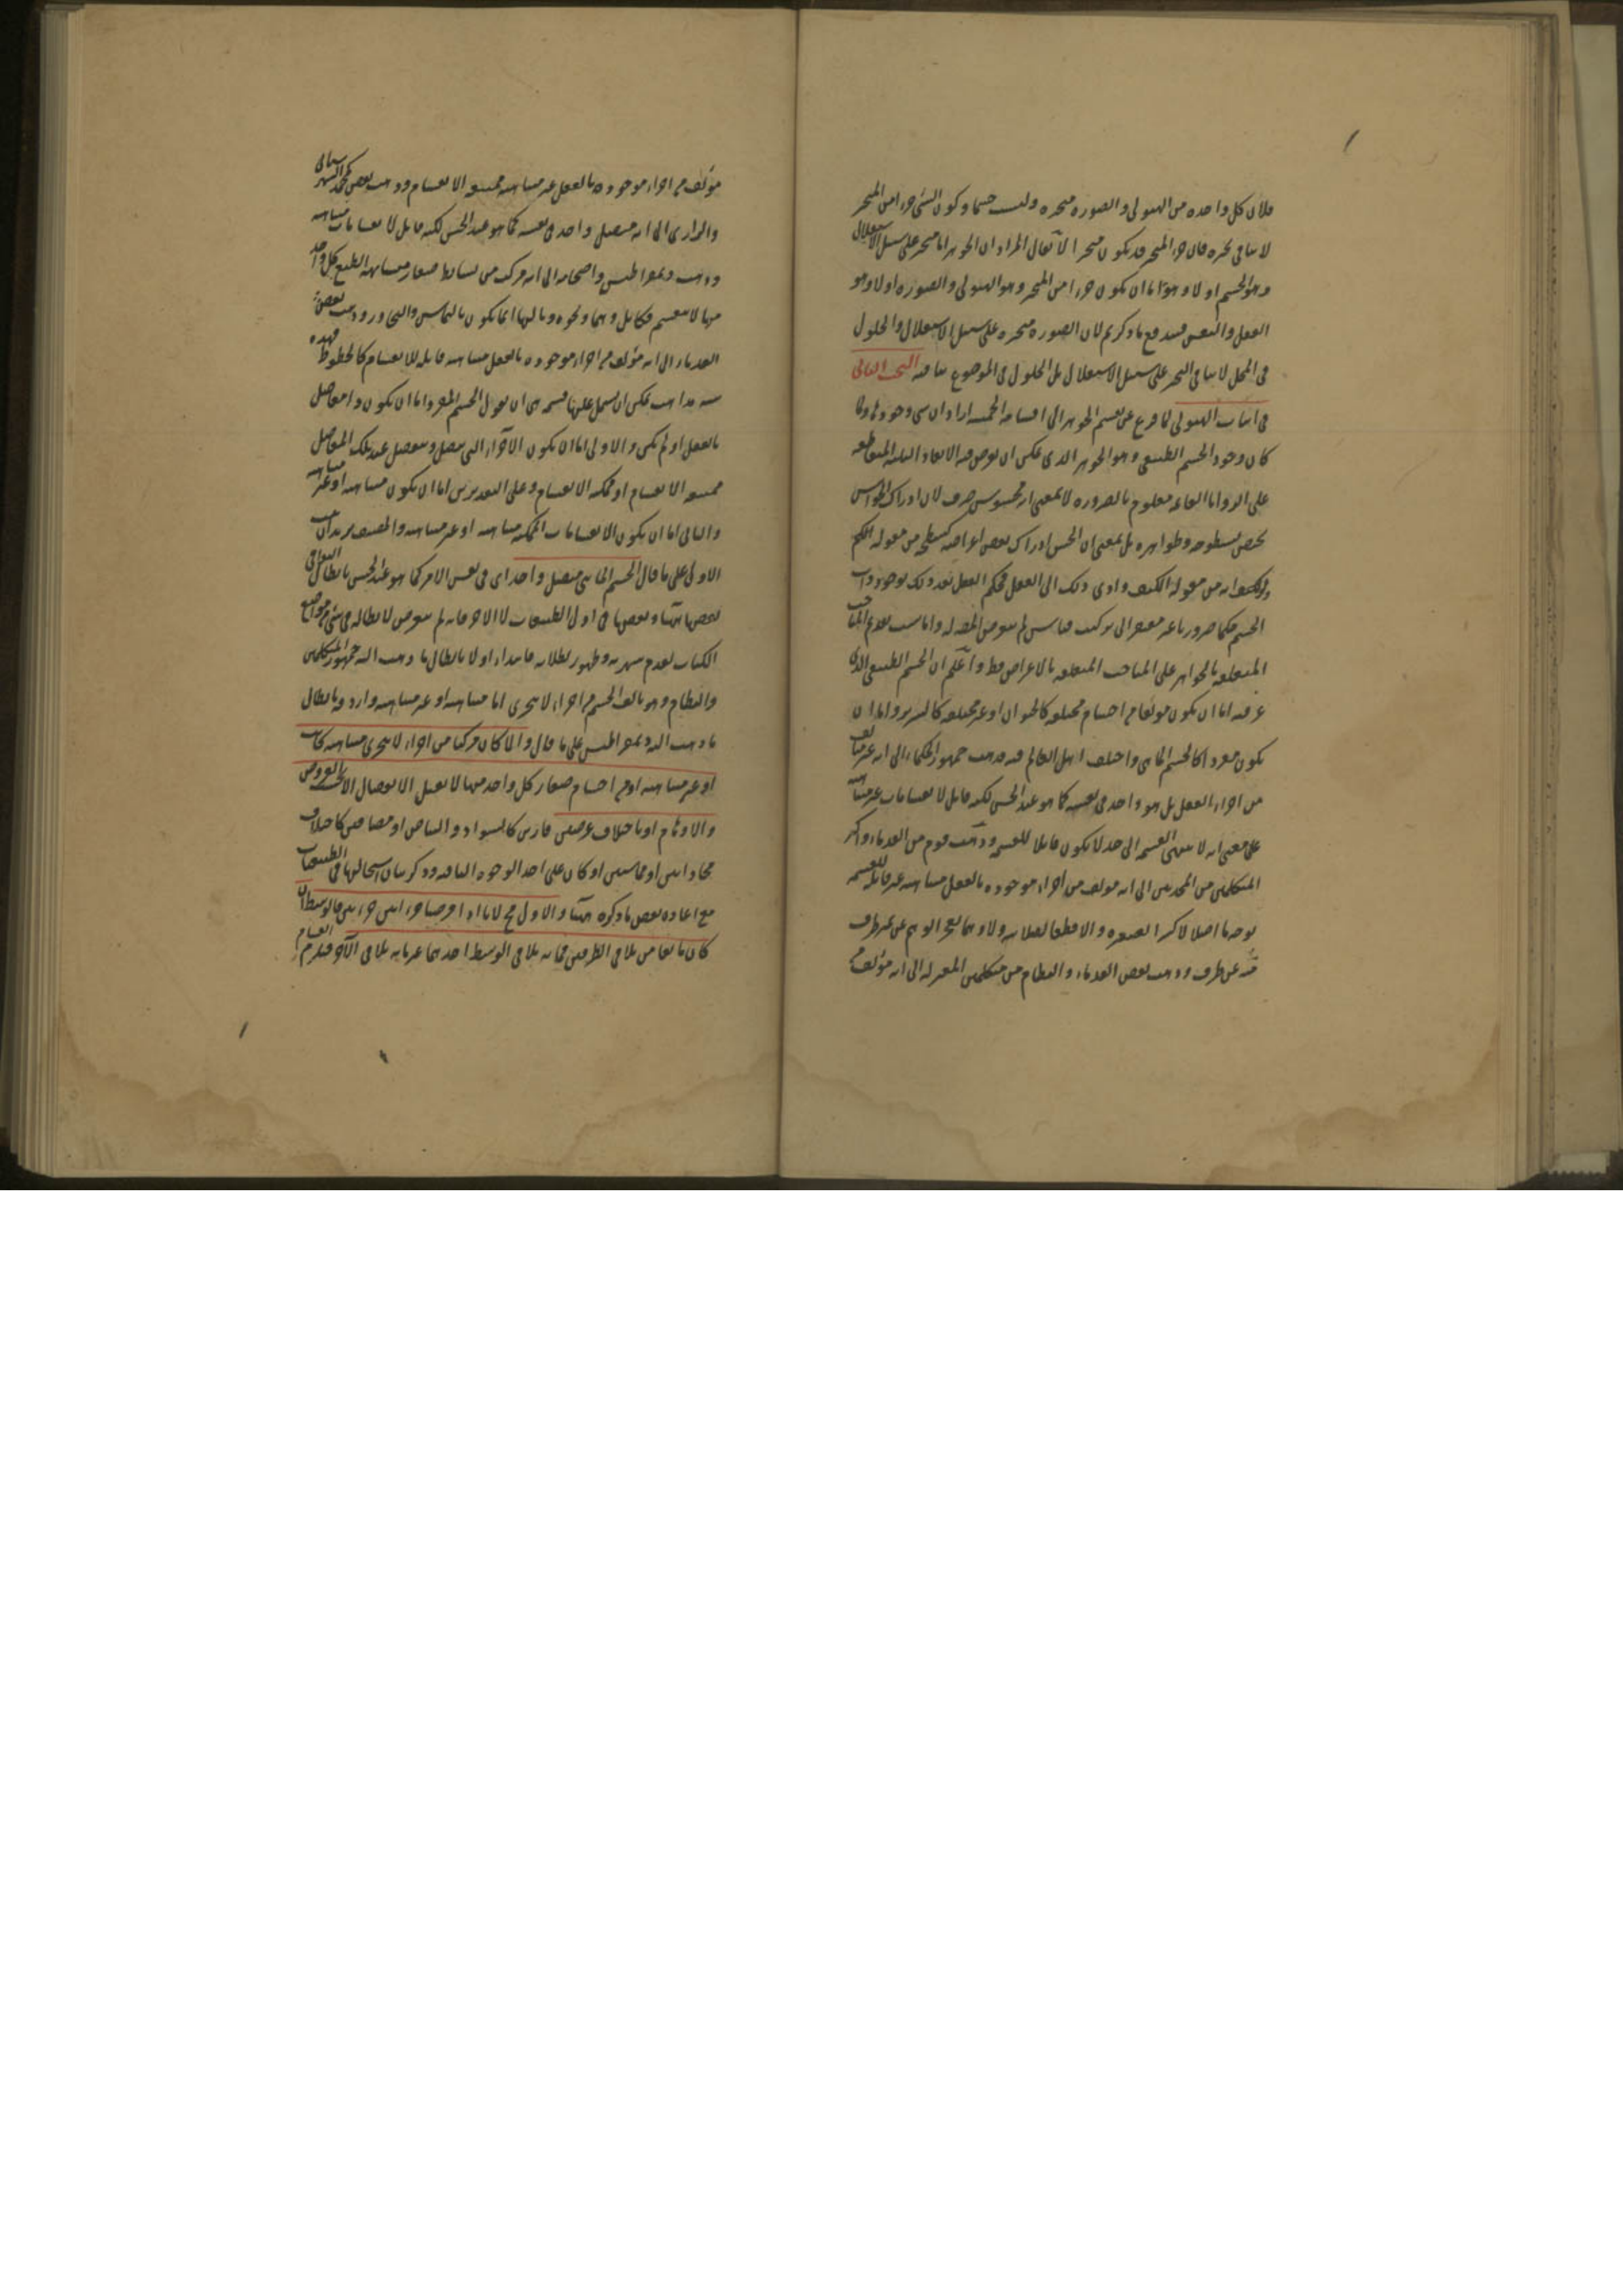 فلان كل واحده من الهيولى والصورة متحيزه وليست جسما وكون الشئ جزءا من المتحيز
لا ينافى تحيزه فان جزء المتحيز قد يكون متحيزا لانا نقول المراد ان الجوهر اما متحيز على سبيل الاستقلال
وهو الجسم اولا وهو اما ان يكون جزءا من المتحيز وهو الهيولى والصورة اولا وهو
العقل والنفس فيندفع ما ذكرتم لان الصورة متحيزه على سبيل الاستقلال والحلول
فى المحل لا ينافى التحيز على سبيل الاستقلال بل الحلول فى الموضوع ينافيه البحث الثانى
فى اثبات الهيولى لما فرغ عن تقسيم الجوهر الى اقسامه الخمسه اراد ان يبين وجودها ولما
كان وجود الجسم الطبيعى وهو الجوهر الذى يمكن ان يفرض فيه الابعاد الثلثه المتقاطعه
على الزوايا القائمه معلوم بالضروره لا بمعنى انه محسوس صرف لان ادراك الحواس
يختص بسطوحه وظواهره بل بمعنى ان الحس ادراك بعض اعراضه كسطحه من مقوله الكم
ولونه من مقوله الكيف وادى ذلك الى العقل فحكم العقل بعد ذلك بوجود ذات
الجسم حكما ضروريا غير مفتقر الى تركيب قياس لم يتعرض المصنف له وانما سبب تقديم المباحث
المتعلقه بالجواهر على المباحث المتعلقه بالاعراض فقط واعلم ان الجسم الطبيعى الذى
عرفته اما ان يكون مؤلفا من اجسام مختلفه كالحيوان او غير مختلفه كالسرير واما ان
يكون مفردا كالجسم المائى واختلف اهل العالم فيه فذهب جمهور الحكماء الى انه غير مؤلف
من اجزاء بالفعل بل هو واحد فى نفسه كما هو عند الحس لكنه قابل لانقسامات غير متناهيه
على معنى انه لا ينتهى القسمه الى حد لا يكون قابلا للقسمه وذهب قوم من القدماء واكثر
المتكلمين من المحدثين الى انه مؤلف من اجزاء موجوده بالفعل متناهيه غير قابله للقسمه
بوجه ما اصلا لا كسرا لصغره ولا قطعا لصلابته ولا وهما لعجز الوهم عن تميز طرف
منه عن طرف وذهب بعض القدماء والنظام من متكلمى المعتزله الى انه مؤلف من
مؤلف من اجزاء موجوده بالفعل غير متناهيه ممتنعه الانقسام وذهب بعض كمحمد الشهرستانى
والرازى الى انه متصل واحد فى نفسه كما هو عند الحس لكنه قابل لانقسامات متناهيه
وذهب ديمقراطيس واصحابه الى انه مركب من بسائط صغار متشابهه الطبع كل واحد
منها لا ينقسم فكا بل وهما ونحوه وتالفها انما يكون بالتماس والتجاور وذهب بعض
القدماء الى انه مؤلف من اجزاء موجوده بالفعل متناهيه قابله للانقسام كالخطوط فهذه
سته مذاهب يمكن ان يشتمل عليها قسمه هى ان نقول الجسم المفرد اما ان يكون ذا مفاصل
بالفعل او لم يكن والاولى اما ان يكون الاجزاء التى تتصل وتنفصل عند تلك المفاصل
ممتنعه الانقسام او ممكنه الانقسام وعلى التقديرين اما ان يكون متناهيه او غير متناهيه
والثانى اما ان يكون الانقسامات الممكنه متناهيه او غير متناهيه والمصنف يريد اثبات
الاولى على ما قال الجسم المائى متصل واحد اى فى نفس الامر كما هو عند الحس بابطال البواقى
بعضها هيهنا وبعضها فى اول الطبيعيات لا الاخر فانه لم يتعرض لابطاله فى شئ من مواضع
الكتاب لعدم شهرته وظهور بطلانه فابتداء اولا بابطال ما ذهب اليه جمهور المتكلمين
والنظام وهو تالف الجسم من اجزاء لا تتجزى اما متناهيه او غير متناهيه واردفه بابطال
ما ذهب اليه ديمقراطيس على ما قال والا كان مركبا من اجزاء لا تتجزى متناهيه كانت
او غير متناهيه او من اجسام صغار كل واحد منها لا يقبل الانفصال الا بحسب الفروض
والاوهام او باختلاف عرضين قارين كالسواد والبياض او مضافين كاختلاف
محاذاتين او مماستين او كان على احد الوجوه الباقيه وذكر بيان استحالتها فى الطبيعيات
مع اعاده بعض ما ذكره هيهنا والاول مح لانا اذا فرضنا جزءا بين جزءين فالوسط ان
كان مانعا من تلاقى الطرفين فما به يلاقى الوسط احدهما غير ما به يلاقى الآخر فيلزم انقسام